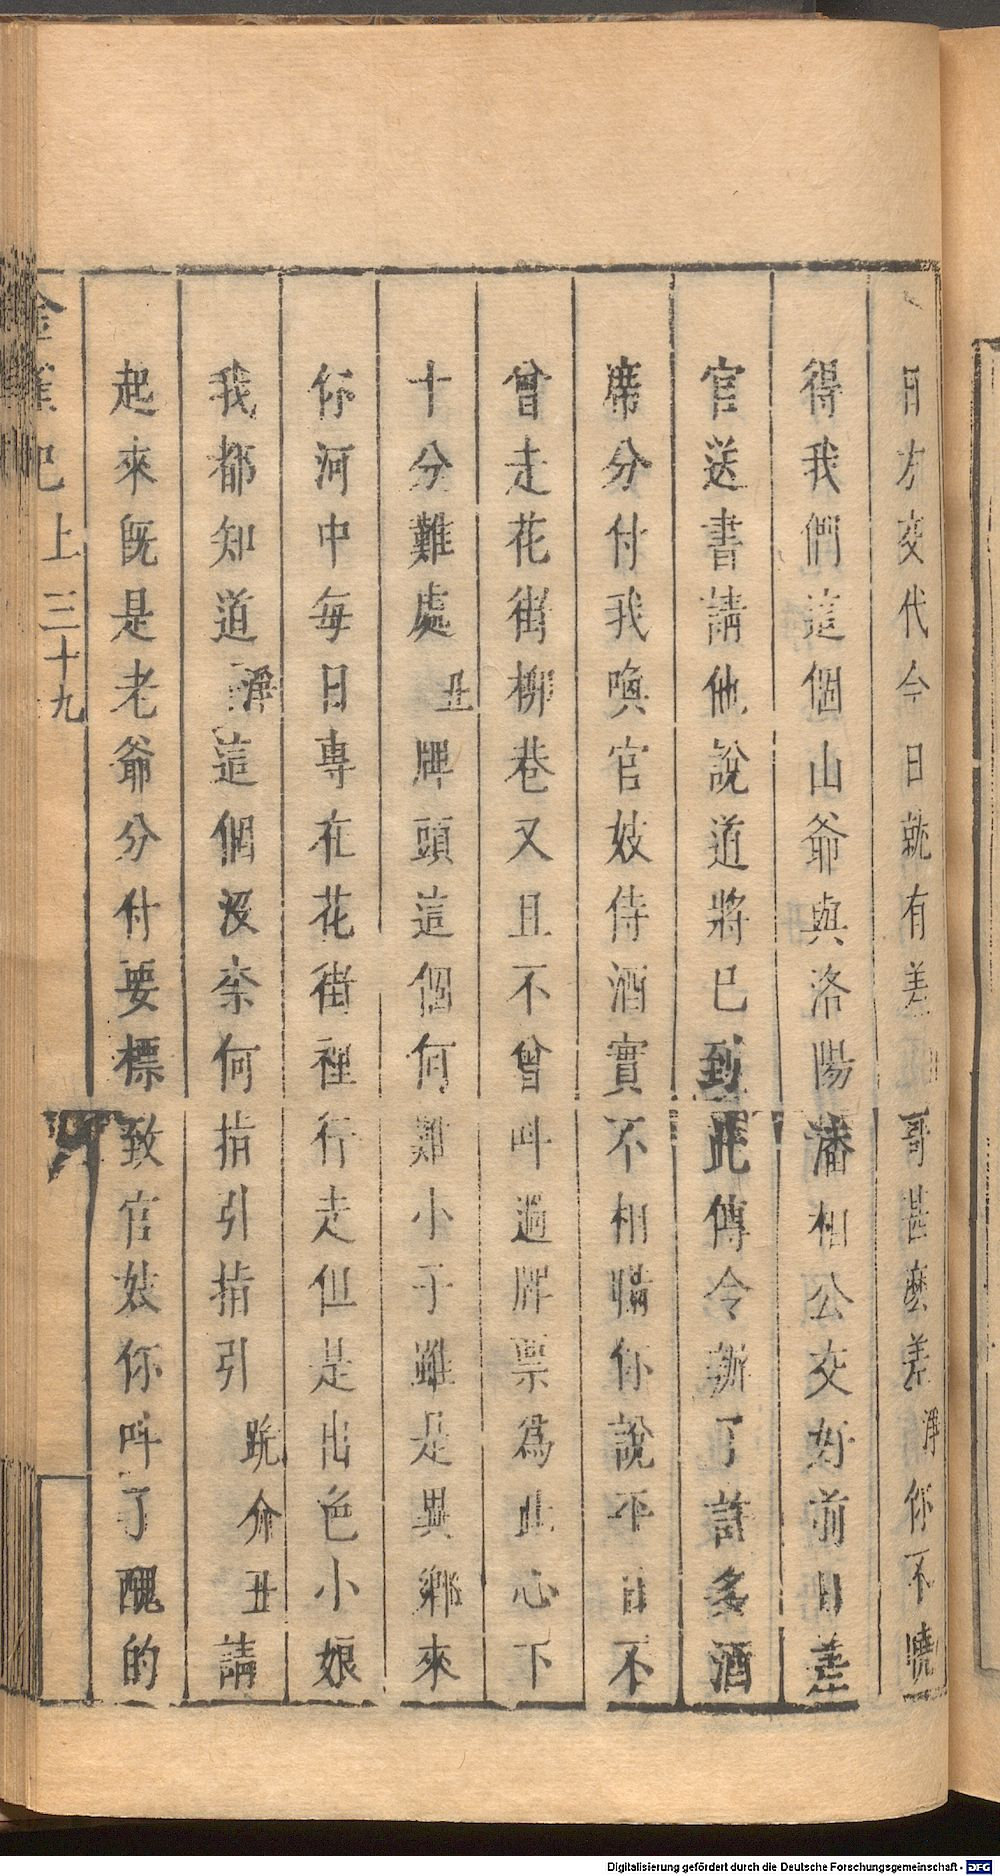 日方交代今日就有差丑哥甚麽差淨你不曉
得我們這個山爺與洛陽潘相公交好前日差
官送書請他說道將已到此傳令辦了許多酒
席分付我喚官妓侍酒實不相瞞你說平日不
曾走花街柳巷又且不曾叫過牌票爲此心下
十分難處丑牌頭這個何難小子雖是異鄉來
你河中每日專在花街裡行走但是出色小娘
我都知道淨這個沒柰何指引指引跪介丑請
起來既是老爺分付要標致官妓你叫了醜的
金雀記上三十九
Digitalisierung gefördert durch die Deutsche Forschungsgemeinschaft - DFG